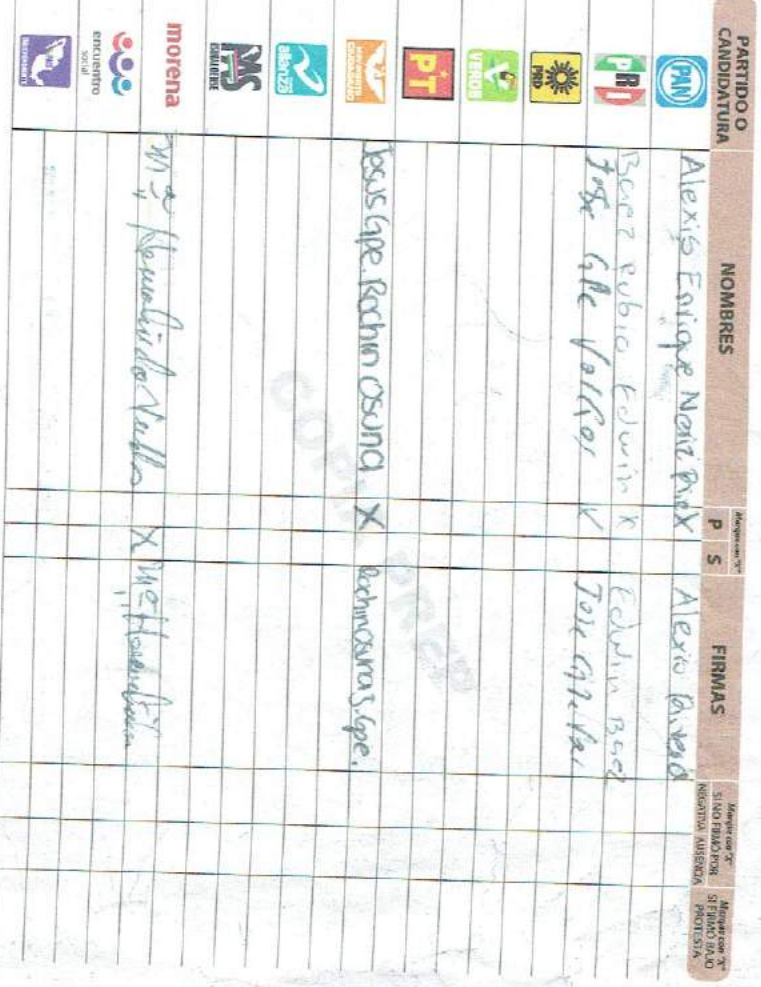 PARTIDO O
CANDIDATURA
NOMBRES
Marque con "X"
P S
FIRMAS
Marque con "X"
SI NO FIRMÓ POR
NEGATIVA AUSENCIA
Marque con "X"
SI FIRMÓ BAJO
PROTESTA
PAN Alexis Enrique X Alexis
PRI Baez Rubio Edwin X Edwin Baez
Jose Gpe X Jose Gpe
PRD
VERDE
PT
MOVIMIENTO CIUDADANO Jesus Gpe. Rochin Osuna X Rochin Osuna J. Gpe.
alianza
PAS
SINALOENSE
morena Mª X Mª
encuentro
social
COPIA PREP